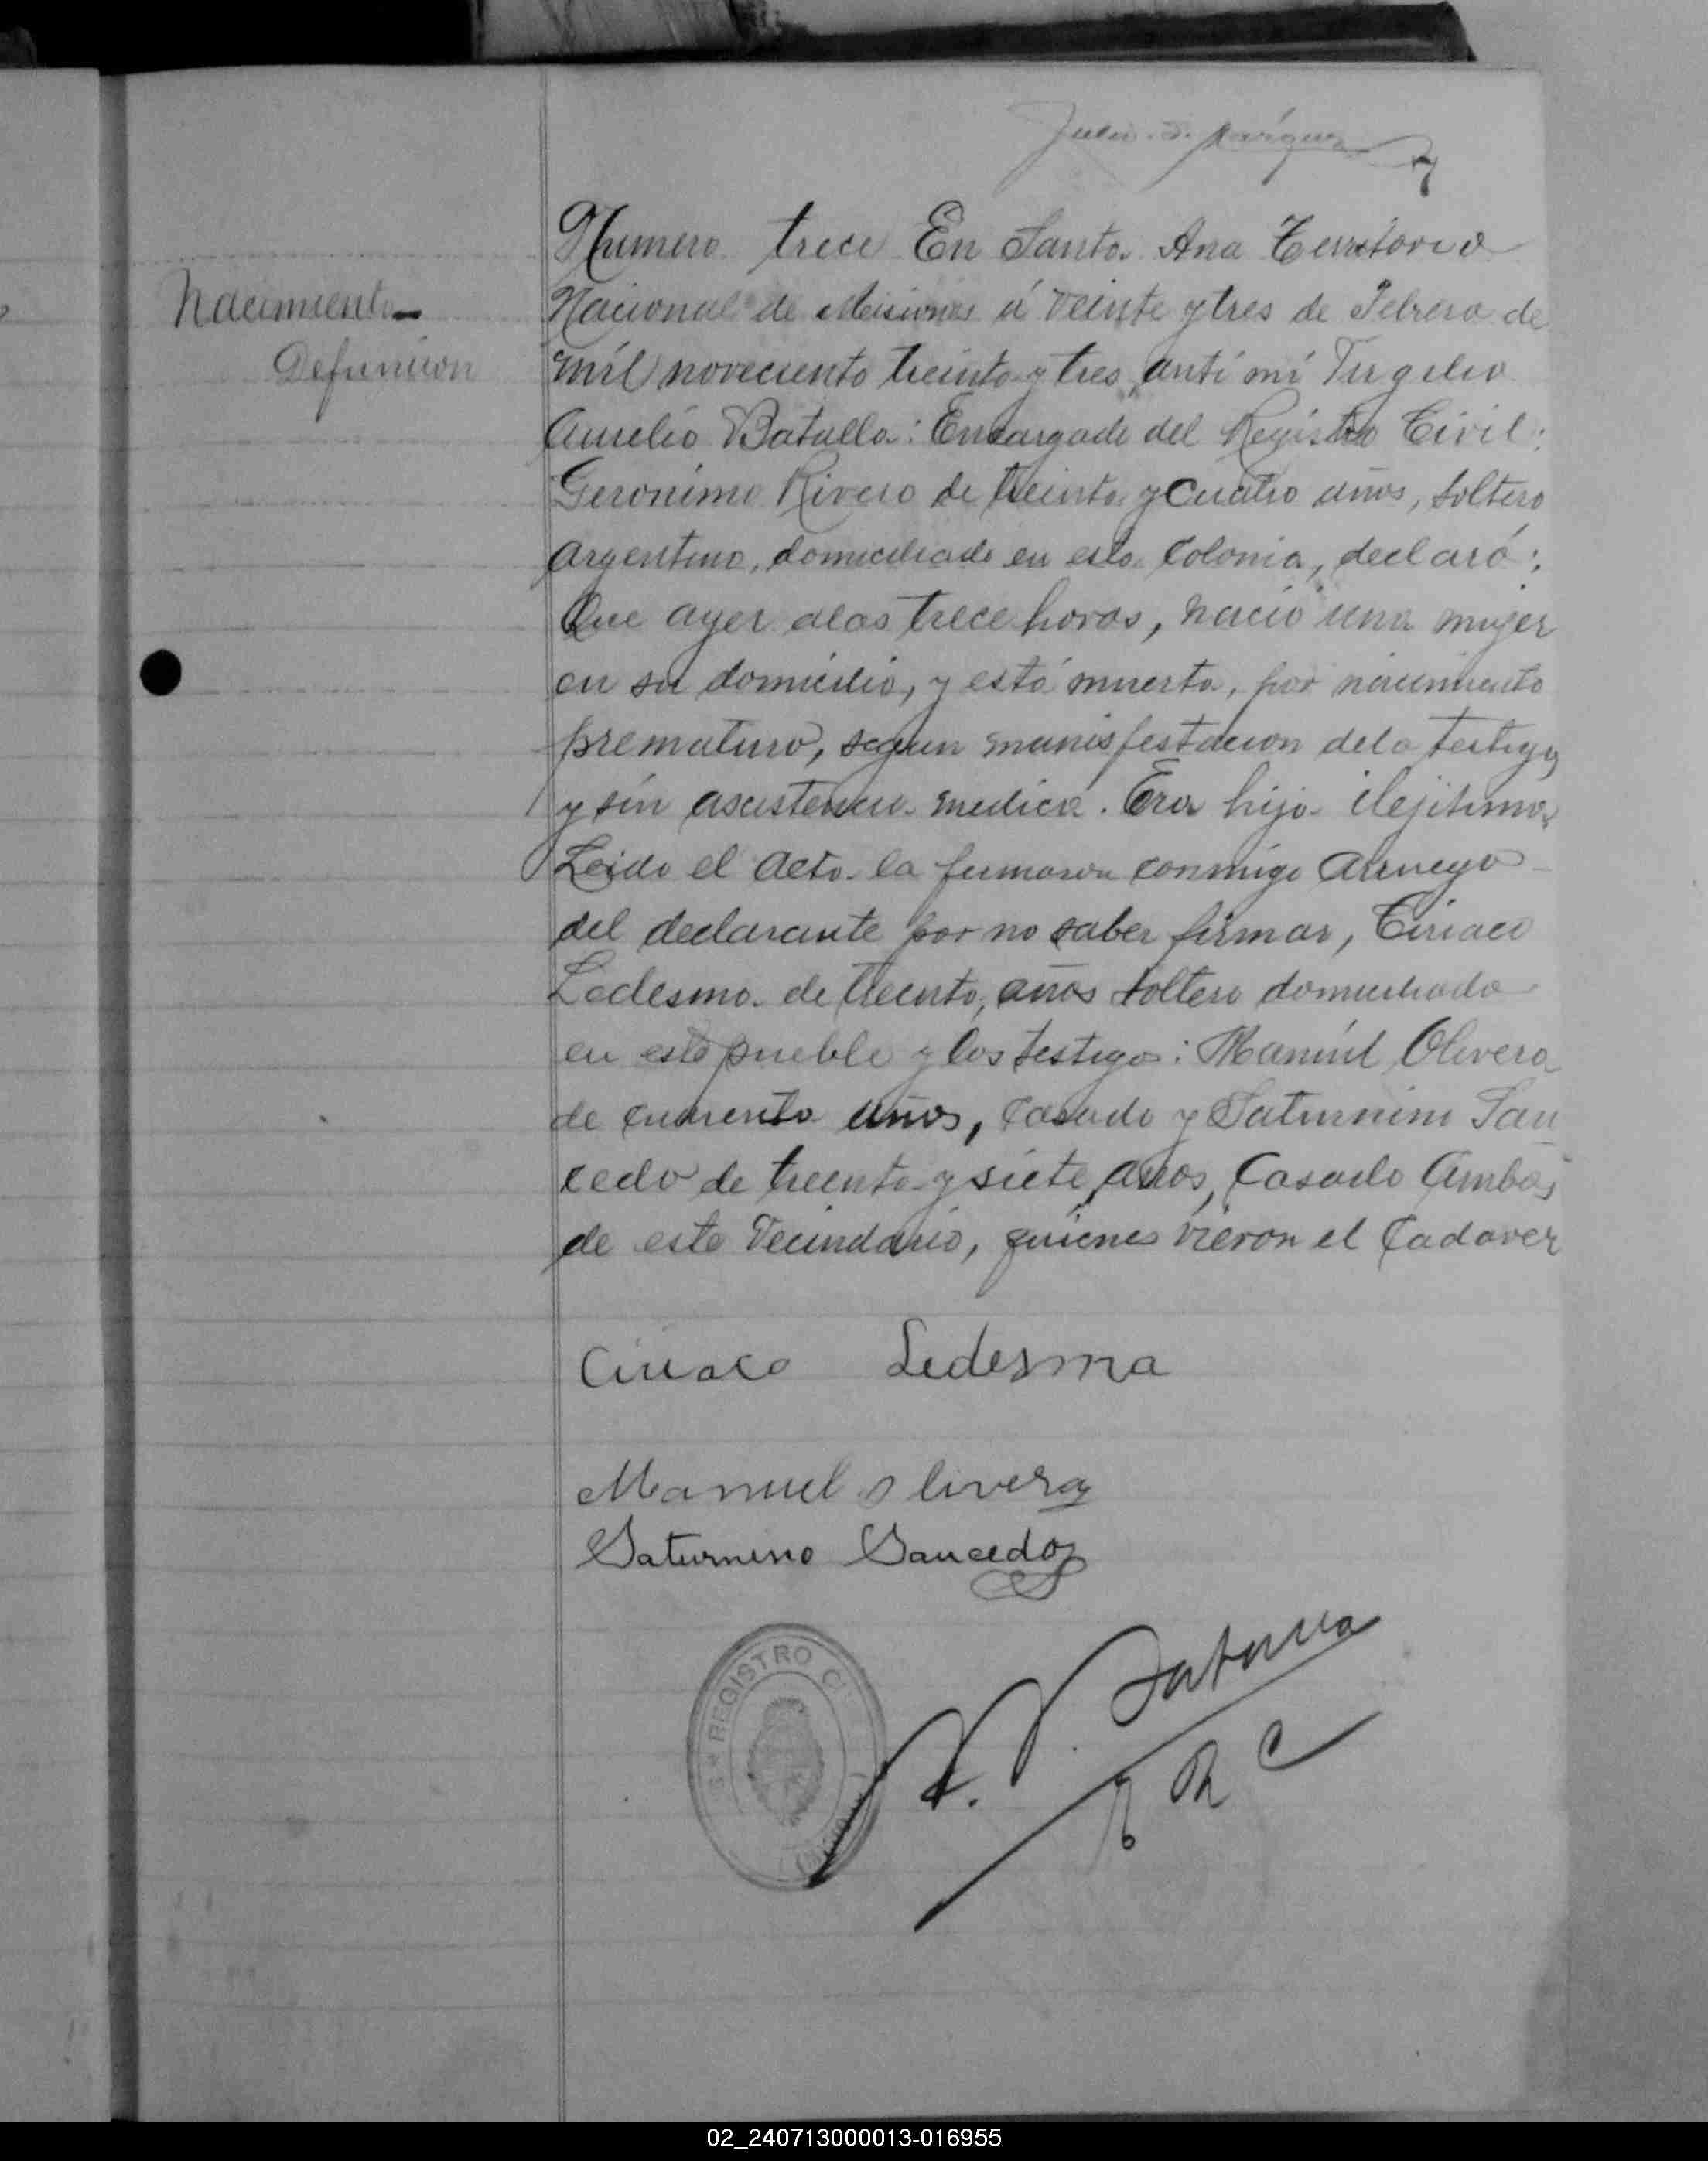 Julio. D. Márquez
7
Numero trece En Santa Ana Territorio
Nacimiento
Nacional de Misiones á veinte y tres de Febrero de
Defuncion
mil noveciento treinta y tres, anti mi Virgilio
Aurelio Batalla: Encargado del Registro Civil:
Geronimo Rivero de treinta y cuatro años, soltero
argentino, domiciliado en esta Colonia, declaró:
Que ayer alas trece horas, nacio una mujer
en su domicilio, y está muerta, por nacimiento
prematuro, segun manisfestacion dela testigo
y sin asistencia medica. Era hija ilejitima.
Leido el Acta la firmaron conmigo Arruego
del declarante por no saber firmar, Ciriaco
Ledesma de treinta, años soltero domiciliado
en este pueble y los testigos: Manuel Olivera
de cuarenta años, Casado y Saturnino Sau
cedo de treinta y siete años, Casado Ambos
de este Vecindario, quienes vieron el Cadaver
Ciriaco Ledesma
Manuel Olivera
Saturnino Saucedo
REGISTRO CI
V. Batalla
E R C
02_240713000013-016955